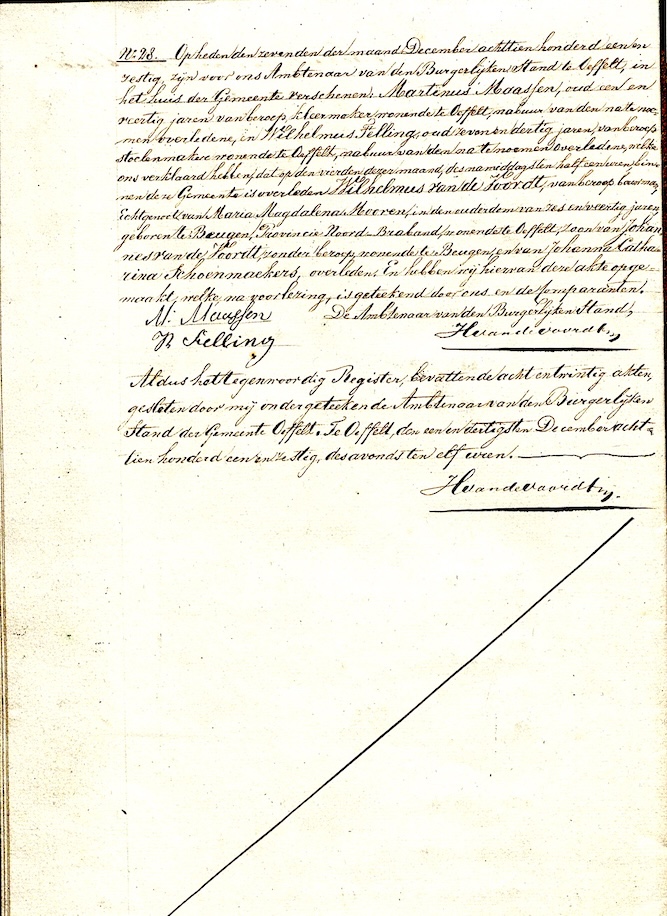 N.º 28. Op heden den zevenden der maand December achttien honderd een en
zestig, zijn voor ons Ambtenaar van den Burgerlijken Stand te Oeffelt, in
het huis der Gemeente verschenen: Martinus Maassen, oud een en
veertig jaren van beroep, kleermaker, wonende te Oeffelt, nabuur van den na te noe-
men overledene, en Wilhelmus Felling, oud zeven en dertig jaren, van beroep
stoelenmaker wonende te Oeffelt, nabuur van den na te noemen overledene, welke
ons verklaard hebben, dat op den vierden dezer maand, des namiddags ten half een uren bin-
nen deze Gemeente is overleden Wilhelmus van de Voordt, van beroep bouwman,
Echtgenoot van Maria Magdalena Meeren, in den ouderdom van zes en veertig jaren
geboren te Beugen, Provincie Noord-Braband, wonende te Oeffelt, Zoon van Johan-
nes van de Voordt, zonder beroep, wonende te Beugen, en van Johanna Catha-
rina Schoenmackers, overleden. En hebben wij hiervan deze akte opge-
maakt, welke na voorlezing, is geteekend door ons en de Comparanten.
M: Maassen De Ambtenaar van den Burgerlijken Stand,
W Felling HvandeVoordt
Aldus het tegenwoordig Register, bevattende acht en twintig akten,
gesloten door mij ondergeteekende Ambtenaar van den Burgerlijken
Stand der Gemeente Oeffelt. Te Oeffelt, den een en dertigsten December acht-
tien honderd een en zestig, des avonds ten elf uren.
HvandeVoordt